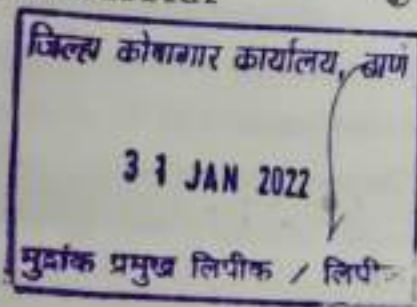 जिल्हा कोषागार कार्यालय, ठाणे
3 1 JAN 2022
मुद्रांक प्रमुख लिपीक / लिपीक